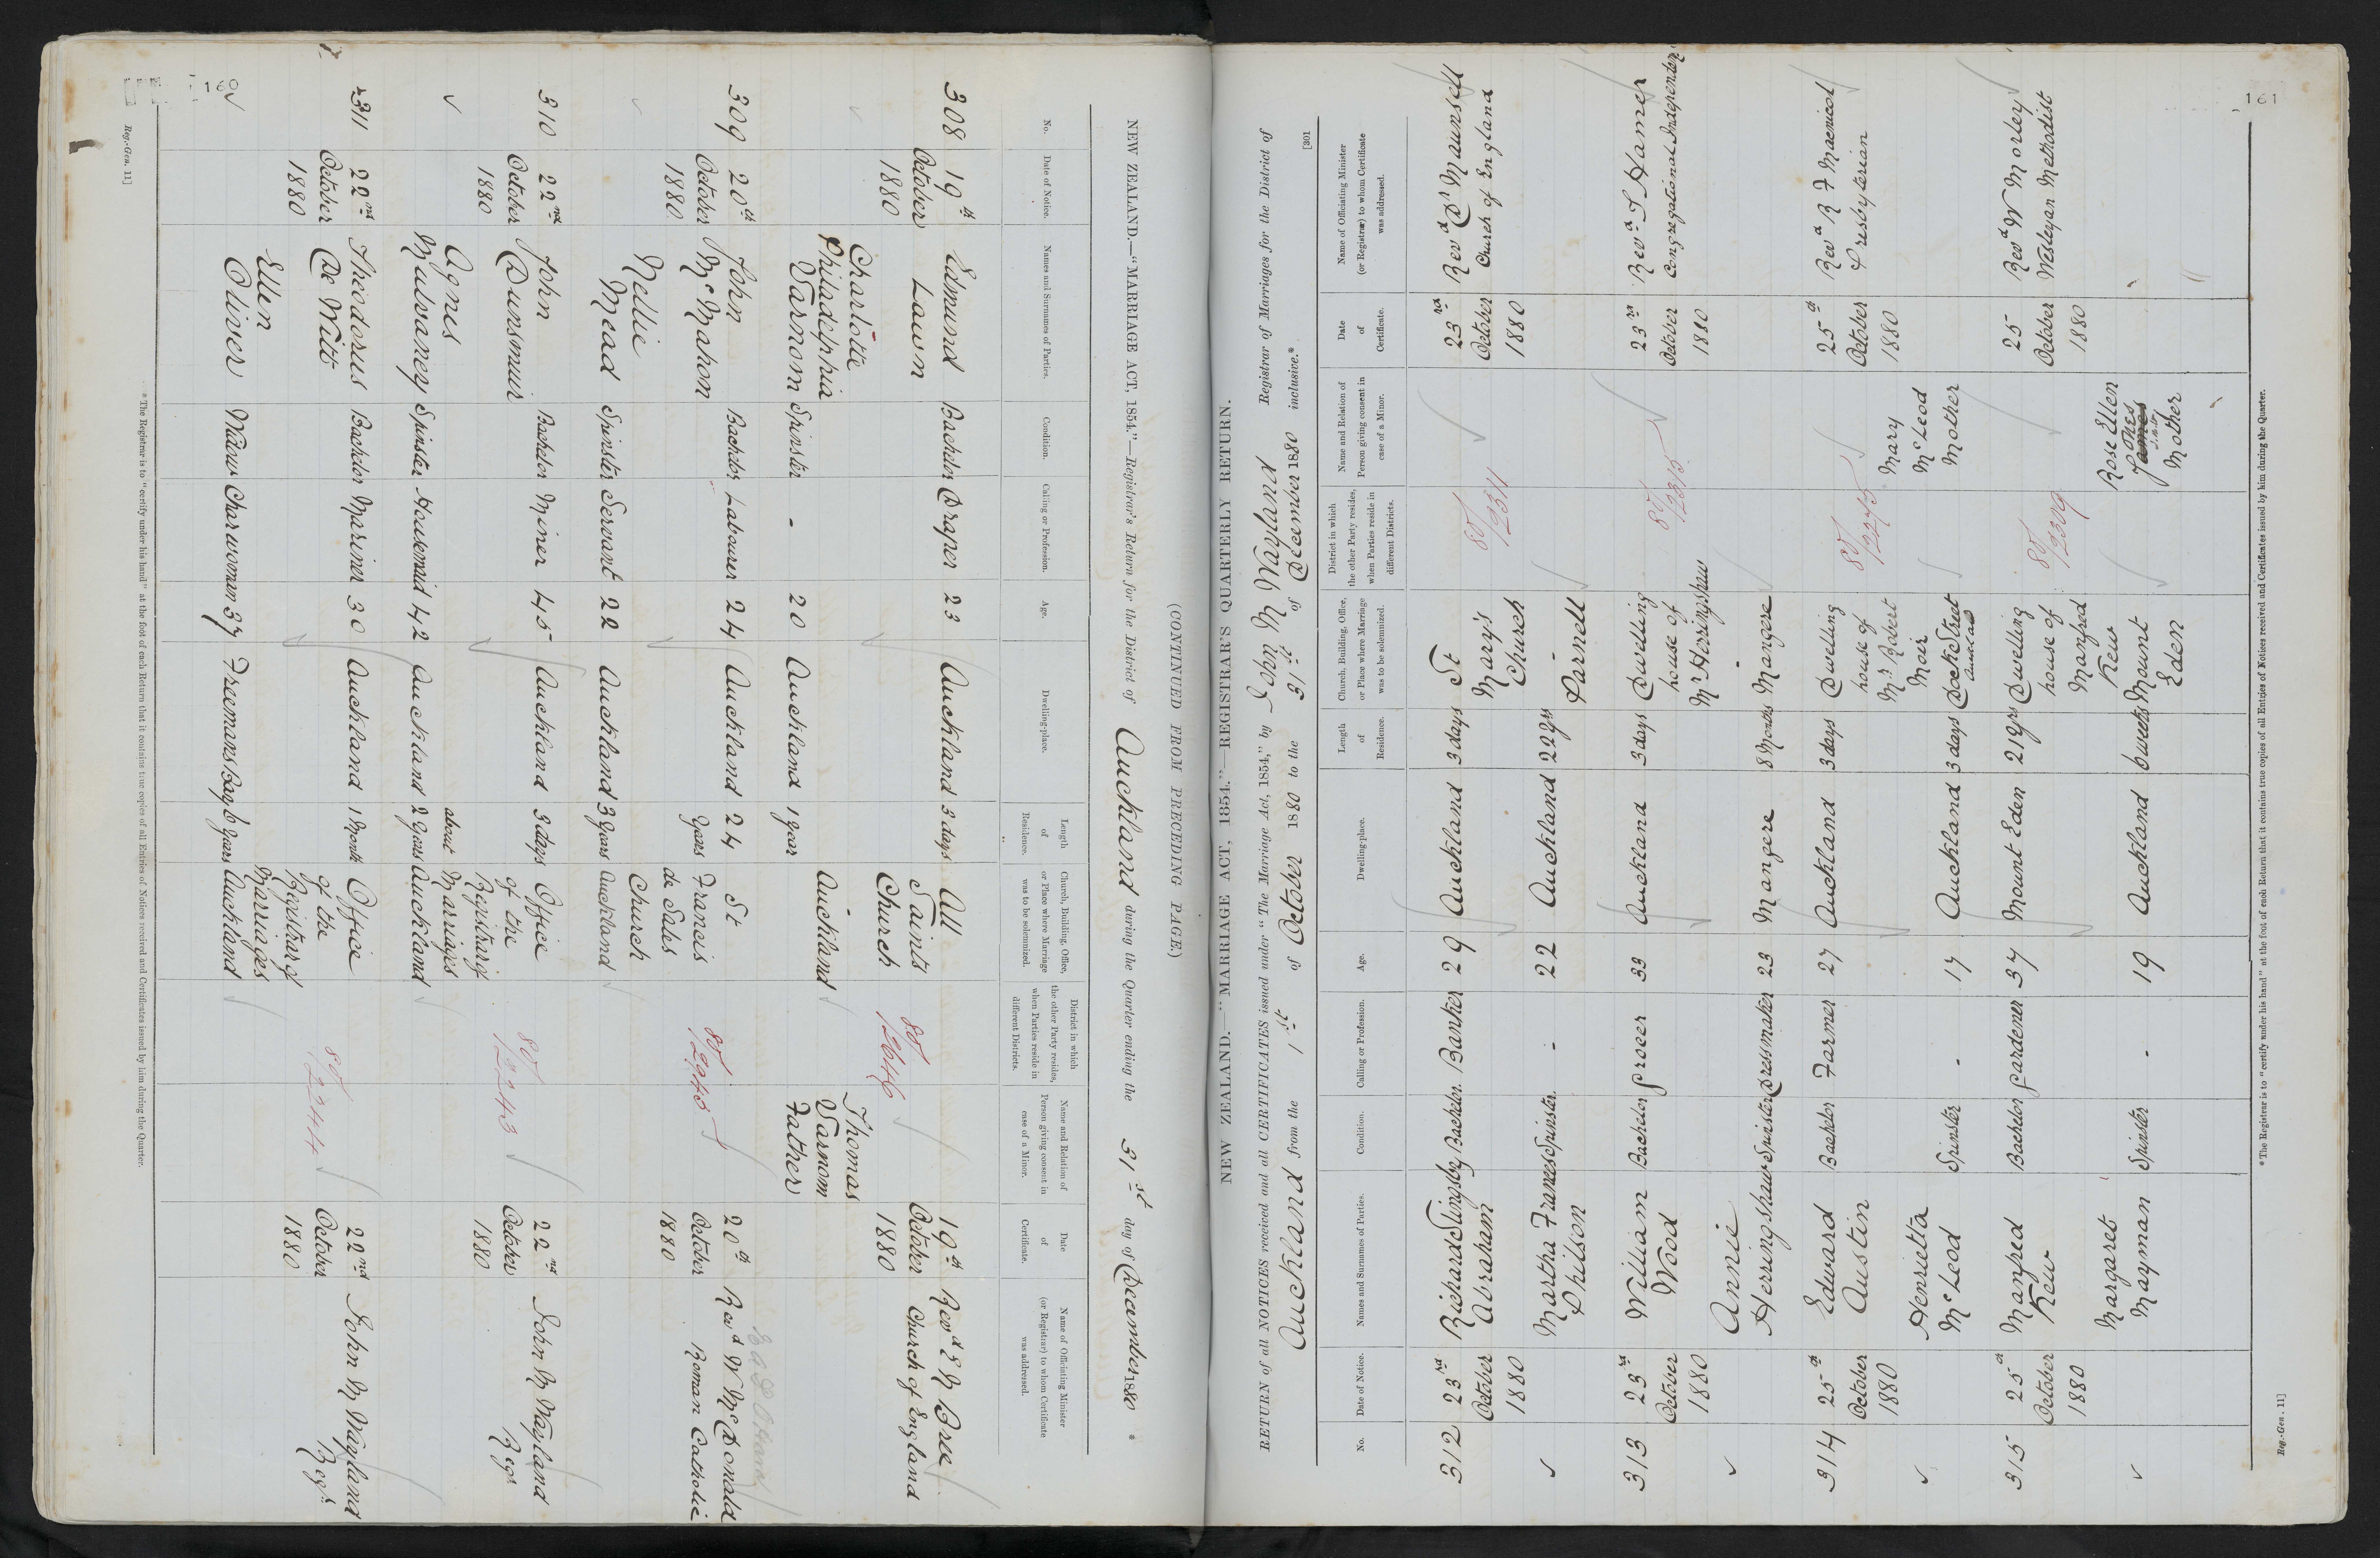 160
NEW ZEALAND.—"MARRIAGE ACT, 1854."—Registrar's Return for the District of Auckland during the Quarter ending the 31st day of December 1880 *
(CONTINUED FROM PRECEDING PAGE.)
No.
Date of Notice.
Names and Surnames of Parties.
Condition.
Calling or Profession.
Age.
Dwelling-place.
Length of Residence.
Church, Building, Office, or Place where Marriage was to be solemnized.
District in which the other Party resides, when Parties reside in different Districts.
Name and Relation of Person giving consent in case of a Minor.
Date of Certificate.
Name of Officiating Minister (or Registrar) to whom Certificate was addressed.
308 19th October 1880
Edmund Lawn Bachelor Draper 23 Auckland 3 days
Charlotte Philadelphia Varnom Spinster - 20 Auckland 1 year
All Saints Church Auckland
80/2646
Thomas Varnom Father
19th October 1880
Revd E N Bree Church of England
309 20th October 1880
John McMahon Bachelor Labourer 24 Auckland 24 years
Nellie Mead Spinster Servant 22 Auckland 3 years
St Francis de Sales Church Auckland
80/2945
20th October 1880
Revd W McDonald Roman Catholic
310 22nd October 1880
John Dunsmuir Bachelor Miner 45 Auckland 3 days
Agnes Mulvaney Spinster Housemaid 42 Auckland about 2 years
Office of the Registrar of Marriages Auckland
80/2243
22nd October 1880
John M Wayland Regr
311 22nd October 1880
Theodorus De Witt Bachelor Mariner 30 Auckland 1 Month
Ellen Oliver Widow Charwoman 37 Freemans Bay 6 years
Office of the Registrar of Marriages Auckland
80/2244
22nd October 1880
John M Wayland Regr.
* The Registrar is to "certify under his hand" at the foot of each Return that it contains true copies of all Entries of Notices received and Certificates issued by him during the Quarter.
Reg.-Gen. 11]
161
NEW ZEALAND.—"MARRIAGE ACT, 1854."—REGISTRAR'S QUARTERLY RETURN.
[301
RETURN of all NOTICES received and all CERTIFICATES issued under "The Marriage Act, 1854," by John M Wayland Registrar of Marriages for the District of
Auckland from the 1st of October 1880 to the 31st of December 1880 inclusive.*
No.
Date of Notice.
Names and Surnames of Parties.
Condition.
Calling or Profession.
Age.
Dwelling-place.
Length of Residence.
Church, Building, Office, or Place where Marriage was to be solemnized.
District in which the other Party resides, when Parties reside in different Districts.
Name and Relation of Person giving consent in case of a Minor.
Date of Certificate.
Name of Officiating Minister (or Registrar) to whom Certificate was addressed.
312 23rd October 1880
Richard Slingsby Abraham Bachelor Banker 29 Auckland 3 days
Martha Frances Philson Spinster - 22 Auckland 22 yrs
St Mary's Church - Parnell
80/2311
23rd October 1880
Revd Dr Maunsell Church of England
313 23rd October 1880
William Wood Bachelor Grocer 33 Auckland 3 days
Annie Herringshaw Spinster Dressmaker 23 Mangere 8 Months
Dwelling house of Mr Herringshaw - Mangere
80/2315
23rd October 1880
Revd S Hamer Congregational Independent
314 25th October 1880
Edward Austin Bachelor Farmer 27 Auckland 3 days
Henrietta McLeod Spinster - 17 Auckland 3 days
Dwelling house of Mr Robert Mair Dock Street Auckland
80/2275
Mary McLeod Mother
25th October 1880
Revd R F Macnicol Presbyterian
315 25th October 1880
Manfred Kew Bachelor Gardener 37 Mount Eden 21 yrs
Margaret Mayman Spinster - 19 Auckland 6 weeks
Dwelling house of Manfred Kew Mount Eden
80/2309
Rose Ellen Jones Mother
25 October 1880
Revd W Morley Wesleyan Methodist
* The Registrar is to "certify under his hand" at the foot of each Return that it contains true copies of all Entries of Notices received and Certificates issued by him during the Quarter.
Reg.-Gen. 11]